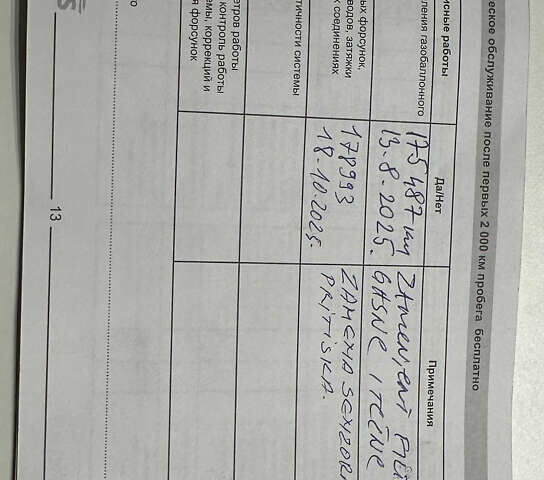 еское обслуживание после первых 2 000 км пробега бесплатно
исные работы Да/Нет Примечания
ления газобаллонного
175487 km ZAMENJENI
13.8.2025. GASNE I TEČNE
ых форсунок,
водов, затяжки
х соединениях
178993 ZAMENA SENZORA
18.10.2025. PRITISKA.
тичности системы
етров работы
контроль работы
емы, коррекций и
я форсунок
13